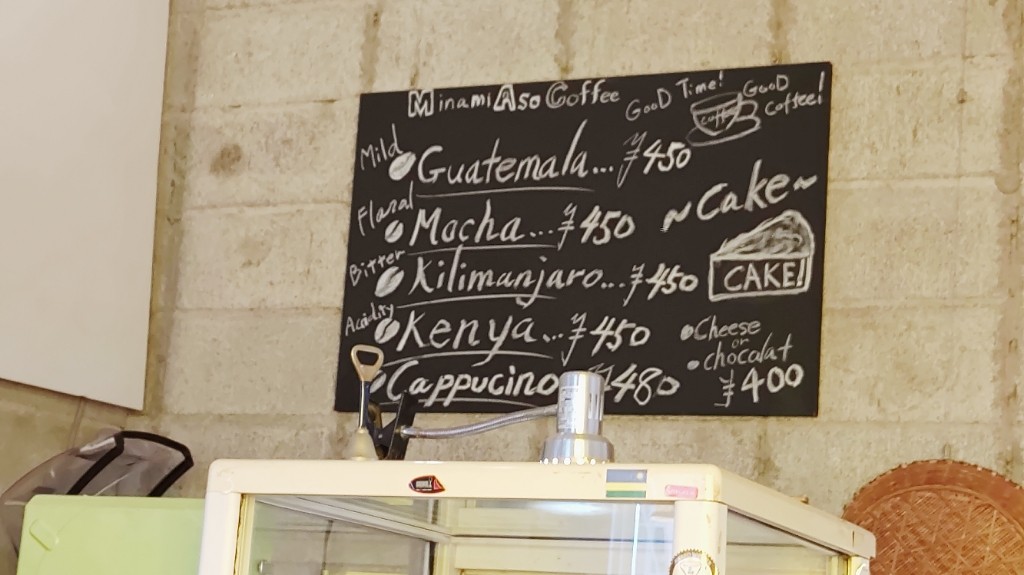 MinamiAso Coffee
GooD Time! GooD Coffee!
coffee
Mild
Guatemala... ¥450
Floral
Mocha... ¥450
Bitter
Kilimanjaro... ¥450
Acidity
Kenya... ¥450
Cappucino ¥480
~Cake~
CAKE!
• Cheese
or
• chocolat
¥400